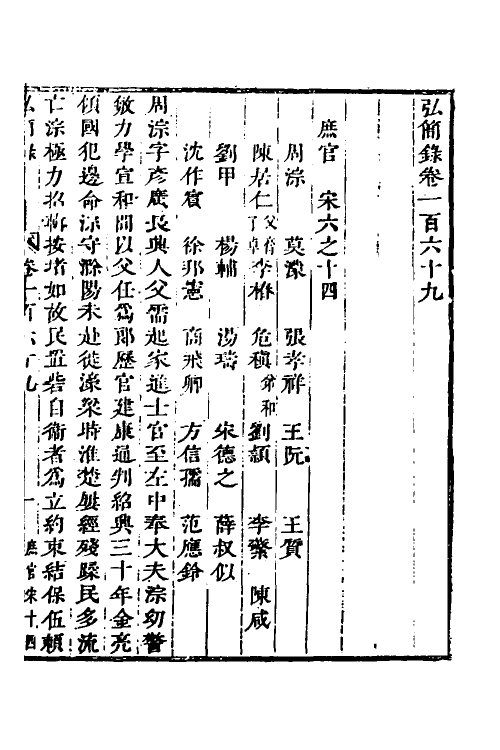 弘簡錄卷一百六十九
庶官　宋六之十四
周淙　莫濛　張孝祥　王阮　王質
陳居仁父膏子卓　李椿　危稹弟和　劉頴　李蘩　陳咸
劉甲　楊輔　湯璹　宋德之　薛叔似
沈作賓　徐邦憲　商飛卿　方信孺　范應鈴
周淙字彥廣長興人父儒起家進士官至左中奉大夫淙幼警
敏力學宣和間以父任爲郎歷官建康通判紹興三十年金亮
傾國犯邊命淙守滁陽未赴徙濠梁時淮楚屢經殘蹂民多流
亡淙極力招輯按堵如故民置砦自衞者爲立約束結保伍頼
弘簡錄　卷一百六十九　一　庶官宋十四